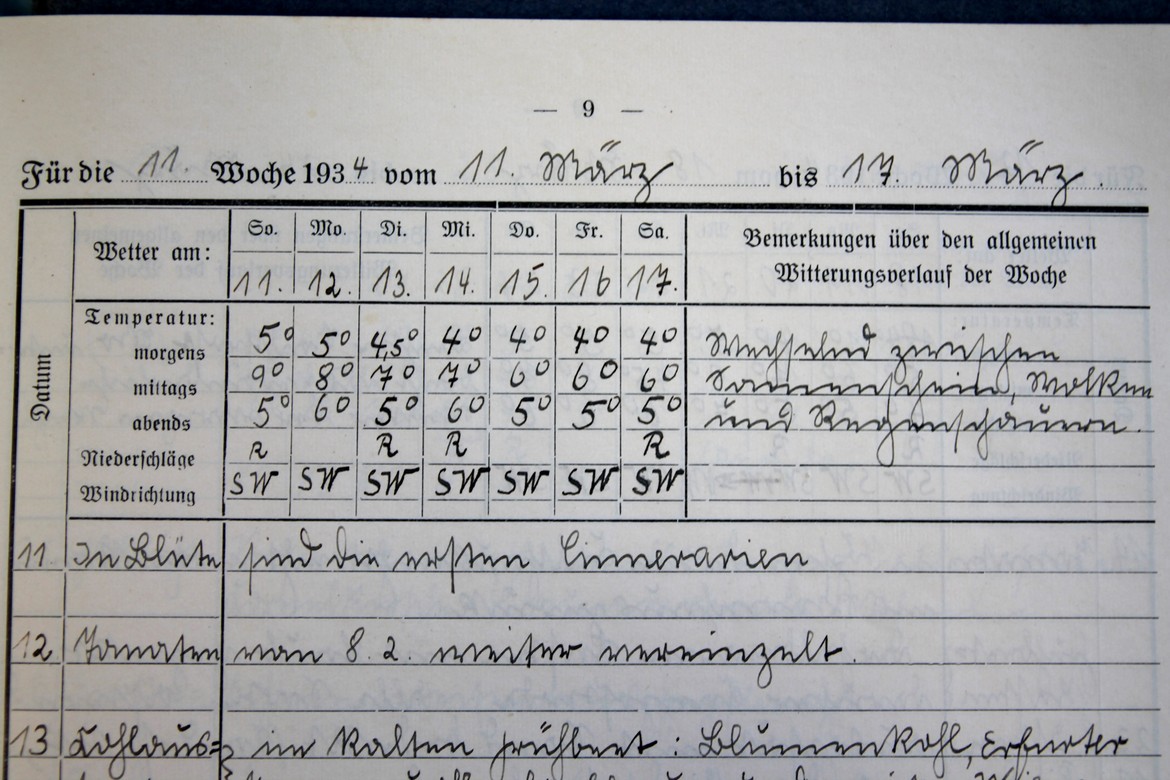 — 9 —
Für die 11. Woche 1934 vom 11. März bis 17. März.
Wetter am: So. Mo. Di. Mi. Do. Fr. Sa. Bemerkungen über den allgemeinen
11. 12. 13. 14. 15. 16 17. Witterungsverlauf der Woche
Datum
Temperatur:
morgens 5° 5° 4,5° 4° 4° 4° 4° Wechselnd zwischen
mittags 9° 8° 7° 7° 6° 6° 6° Sonnenschein, Wolken
abends 5° 6° 5° 6° 5° 5° 5° und Regenschauern.
Niederschläge R R R R
Windrichtung SW SW SW SW SW SW SW
11. In Blüte sind die ersten Cinnerarien
12. Tomaten von 8. 2. weiter vereinzelt.
13 Kohlaus= im kalten Frühbeet: Blumenkohl, Erfurter